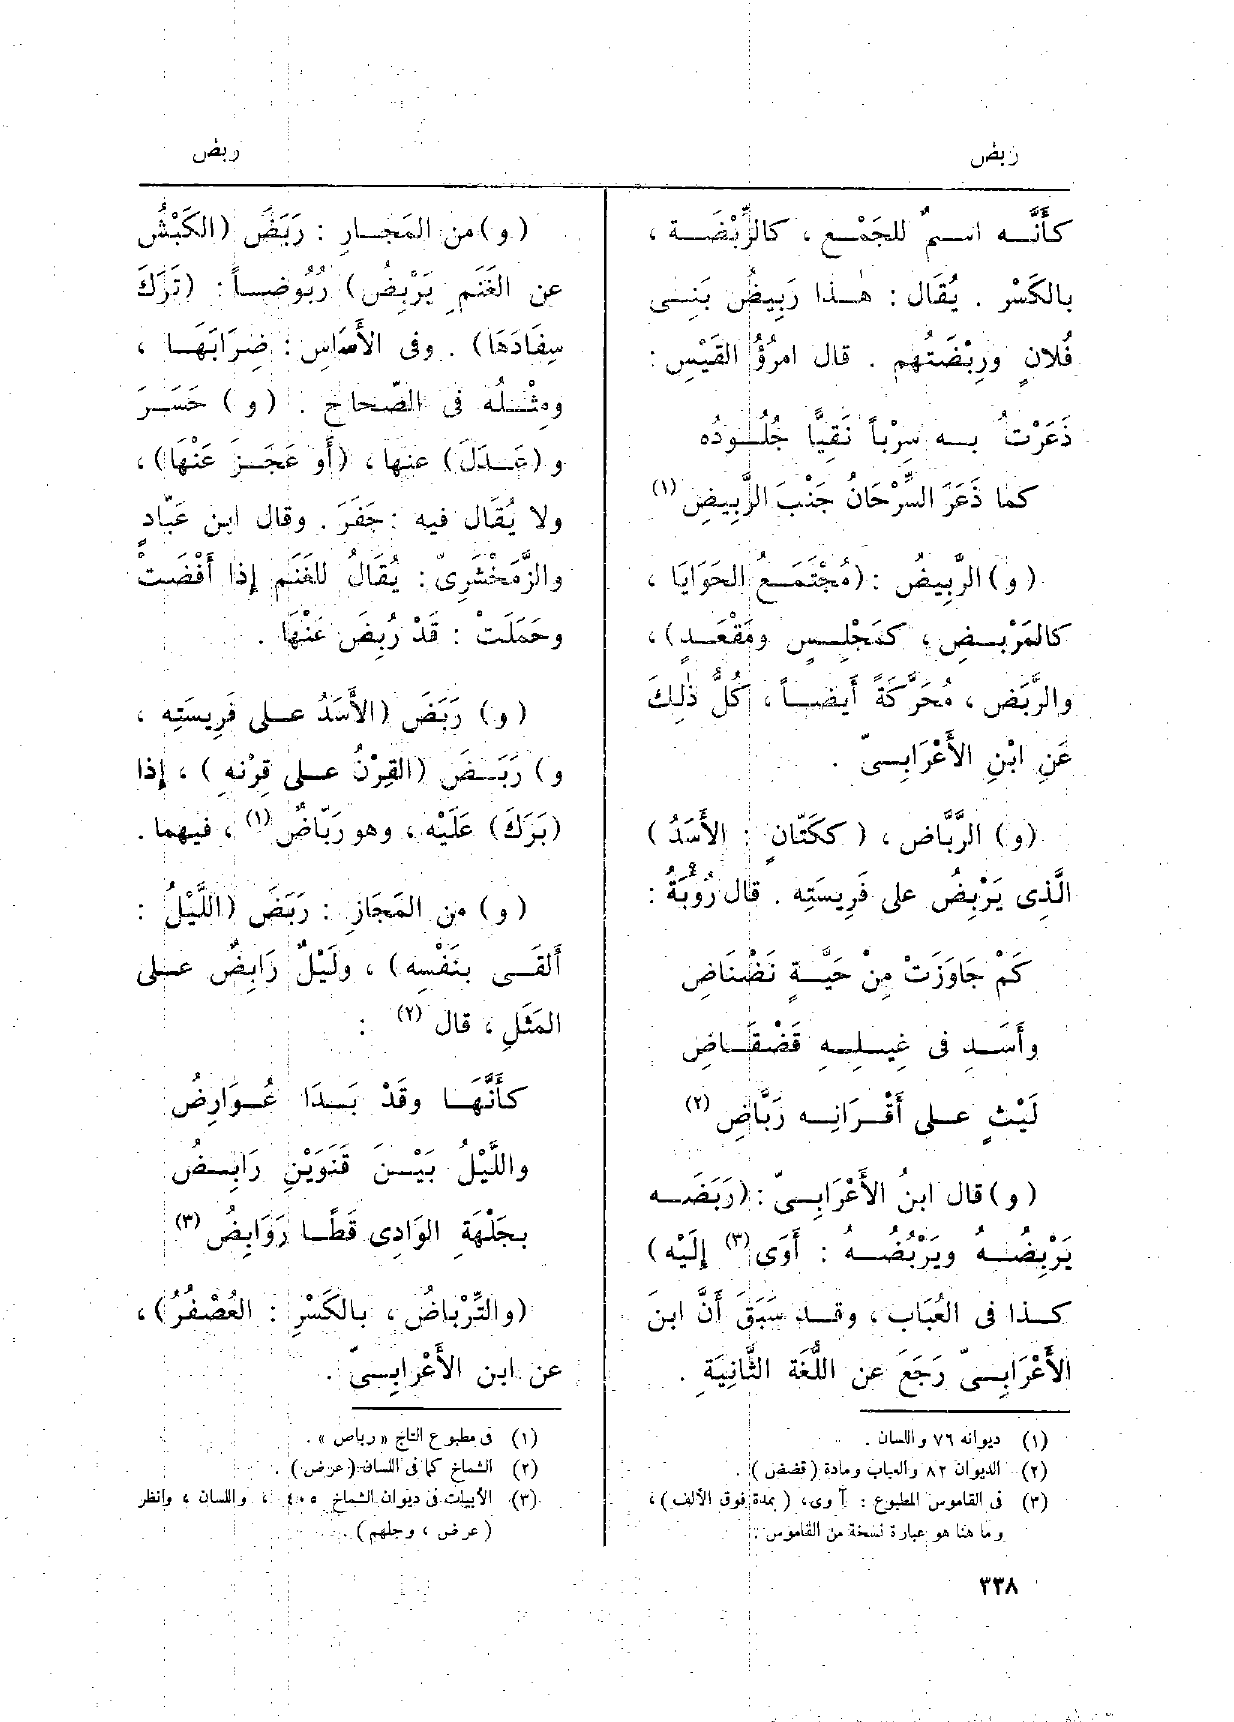 ربض
ربض
كأَنَّه اسمٌ للجَمْع ، كالرِّبْضَة ،
بالكَسْر . يُقَال : هٰذا رَبِيضُ بَنِى
فُلانٍ ورِبْضَتُهم . قال امرُؤُ القَيْسِ :
ذَعَرْتُ به سِرْباً نَقِيًّا جُلُودُه
كما ذَعَرَ السِّرْحَانُ جَنْبَ الرَّبِيضِ (١)
(و) الرَّبِيضُ : (مُجْتَمَعُ الحَوَايَا ،
كالمَرْبِضِ ، كمَجْلِسٍ ومَقْعَدٍ) ،
والرَّبَض ، مُحَرَّكَةً أَيضاً ، كُلُّ ذٰلِكَ
عَنِ ابْنِ الأَعْرَابِىّ .
(و) الرَّبَّاض ، (ككَتّانٍ : الأَسَدُ)
الَّذِى يَرْبِضُ على فَرِيسَتِه . قال رُؤْبَةُ :
كَمْ جَاوَزَتْ مِنْ حَيَّةٍ نَضْنَاضِ
وأَسَدٍ فى غِيلِهِ قَضْقَاضِ
لَيْثٍ على أَقْرَانِه رَبَّاضِ (٢)
(و) قال ابنُ الأَعْرَابِىّ : (رَبَضَه
يَرْبِضُهُ ويَرْبُضُهُ : أَوَى (٣) إِلَيْه)
كذا فى العُبَاب ، وقد سَبَقَ أَنَّ ابنَ
الأَعْرَابِىّ رَجَعَ عن اللُّغَة الثَّانِيَةِ .
(١) ديوانه ٧٦ واللسان .
(٢) الديوان ٨٢ والعباب ومادة (قضض) .
(٣) فى القاموس المطبوع : آوى ، (بمدة فوق الألف) ،
وما هنا هو عبارة نسخة من القاموس .
(و) من المَجَازِ : رَبَضَ (الكَبْشُ
عن الغَنَمِ يَرْبِضُ) رُبُوضاً : (تَرَكَ
سِفَادَهَا) . وفى الأَسَاسِ : ضِرَابَهَا ،
ومِثْلُه فى الصّحاح . (و) حَسَرَ
و (عَدَلَ) عنها ، (أَو عَجَزَ عَنْهَا) ،
ولا يُقَال فيه : جَفَرَ . وقال ابن عَبّادٍ
والزَّمَخْشَرِىّ : يُقَالُ للغَنَمِ إِذا أَفْضَتْ
وحَمَلَتْ : قَدْ رُبِضَ عَنْهَا .
(و) رَبَضَ (الأَسَدُ على فَرِيسَتِه ،
و) رَبَضَ (القِرْنُ على قِرْنِه) ، إِذا
(بَرَكَ) عَلَيْه ، وهو رَبّاضٌ (١) ، فيهما .
(و) من المَجَازِ : رَبَضَ (اللَّيْلُ :
أَلقَى بنَفْسِه) ، ولَيْلٌ رَابِضٌ على
المَثَلِ ، قال (٢) :
كأَنَّهَا وقَدْ بَدَا عُوَارِضُ
واللَّيْلُ بَيْنَ قَنَوَيْنِ رَابِضُ
بجَلْهَةِ الوَادِى قَطًا رَوَابِضُ (٣)
(والتِّرْبَاضُ ، بالكَسْرِ : العُصْفُرُ) ،
عن ابن الأَعْرابِىّ .
(١) فى مطبوع التاج «رباص» .
(٢) الشماخ كما فى اللسان (عرض) .
(٣) الأبيات فى ديوان الشماخ ٤٠٥ ، واللسان ، وانظر
(عرض ، وجلهم) .
٣٣٨